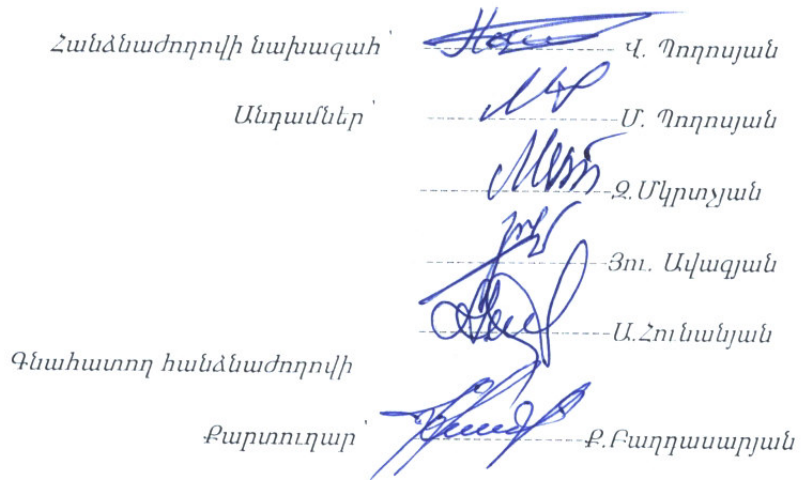 Հանձնաժողովի նախագահ՝ Վ. Պողոսյան
Անդամներ՝ Մ. Պողոսյան
Զ.Մկրտչյան
Յու. Ավագյան
Ա.Հունանյան
Գնահատող հանձնաժողովի
Քարտուղար՝ Ք.Բաղդասարյան